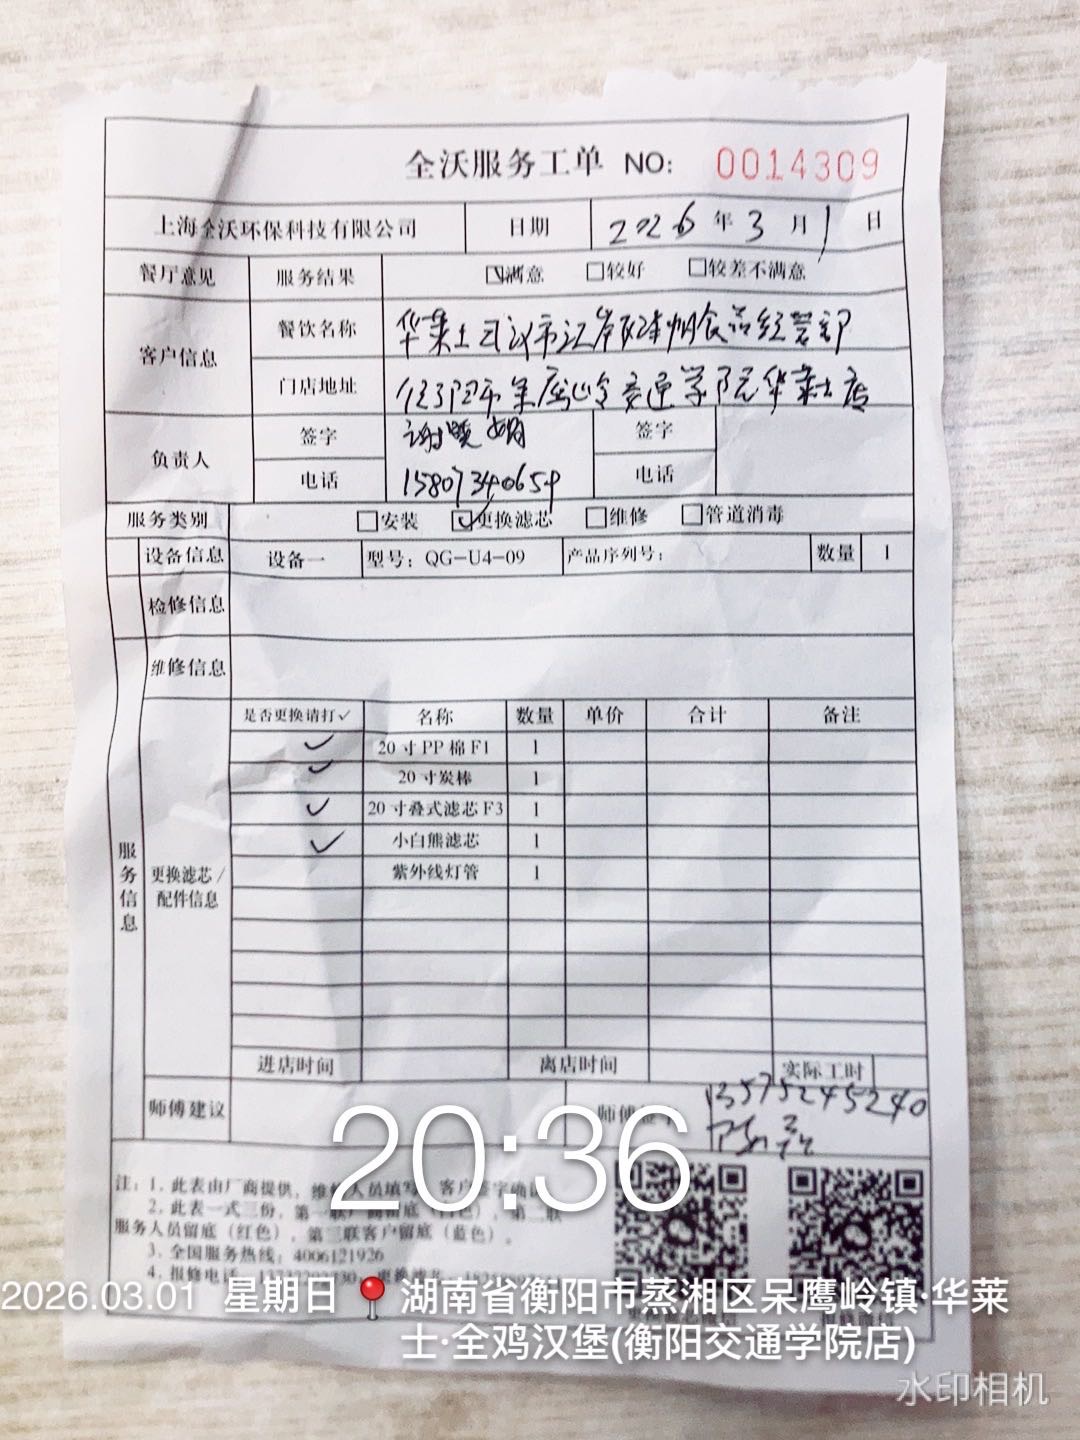 全沃服务工单 NO: 0014309
上海全沃环保科技有限公司 日期 2026年3月1日
餐厅意见 服务结果 ☑满意 □较好 □较差不满意
客户信息 餐饮名称 华莱士武汉市江岸区
门店地址 衡阳市呆鹰岭交通学院华莱士店
负责人 签字 谢晓娟 签字
电话 15807340654 电话
服务类别 □安装 ☑更换滤芯 □维修 □管道消毒
设备信息 设备一 型号：QG-U4-09 产品序列号： 数量 1
检修信息
维修信息
是否更换请打✓ 名称 数量 单价 合计 备注
✓ 20寸PP棉F1 1
✓ 20寸炭棒 1
✓ 20寸叠式滤芯F3 1
✓ 小白熊滤芯 1
紫外线灯管 1
服务信息
更换滤芯/
配件信息
进店时间 离店时间 实际工时
师傅建议 师傅签字 13575245240
20:36
注：1. 此表由厂商提供，维修人员填写，客户签字确认
2. 此表一式三份，第一联厂商留底 ，第二联
服务人员留底（红色），第三联客户留底（蓝色）。
3. 全国服务热线：4006121926
4. 报修电话
2026.03.01 星期日 湖南省衡阳市蒸湘区呆鹰岭镇·华莱
士·全鸡汉堡(衡阳交通学院店)
水印相机